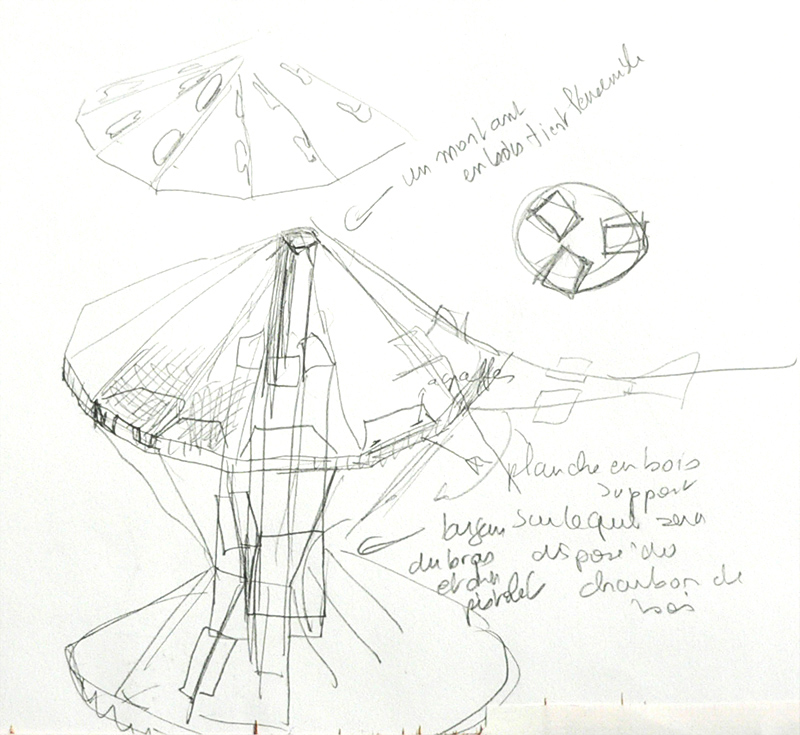 un montant
en bois tient l'ensemble
agraffes
planche en bois
support
sur lequel sera
disposé du
charbon de
bois
du bras
et du
pistolet